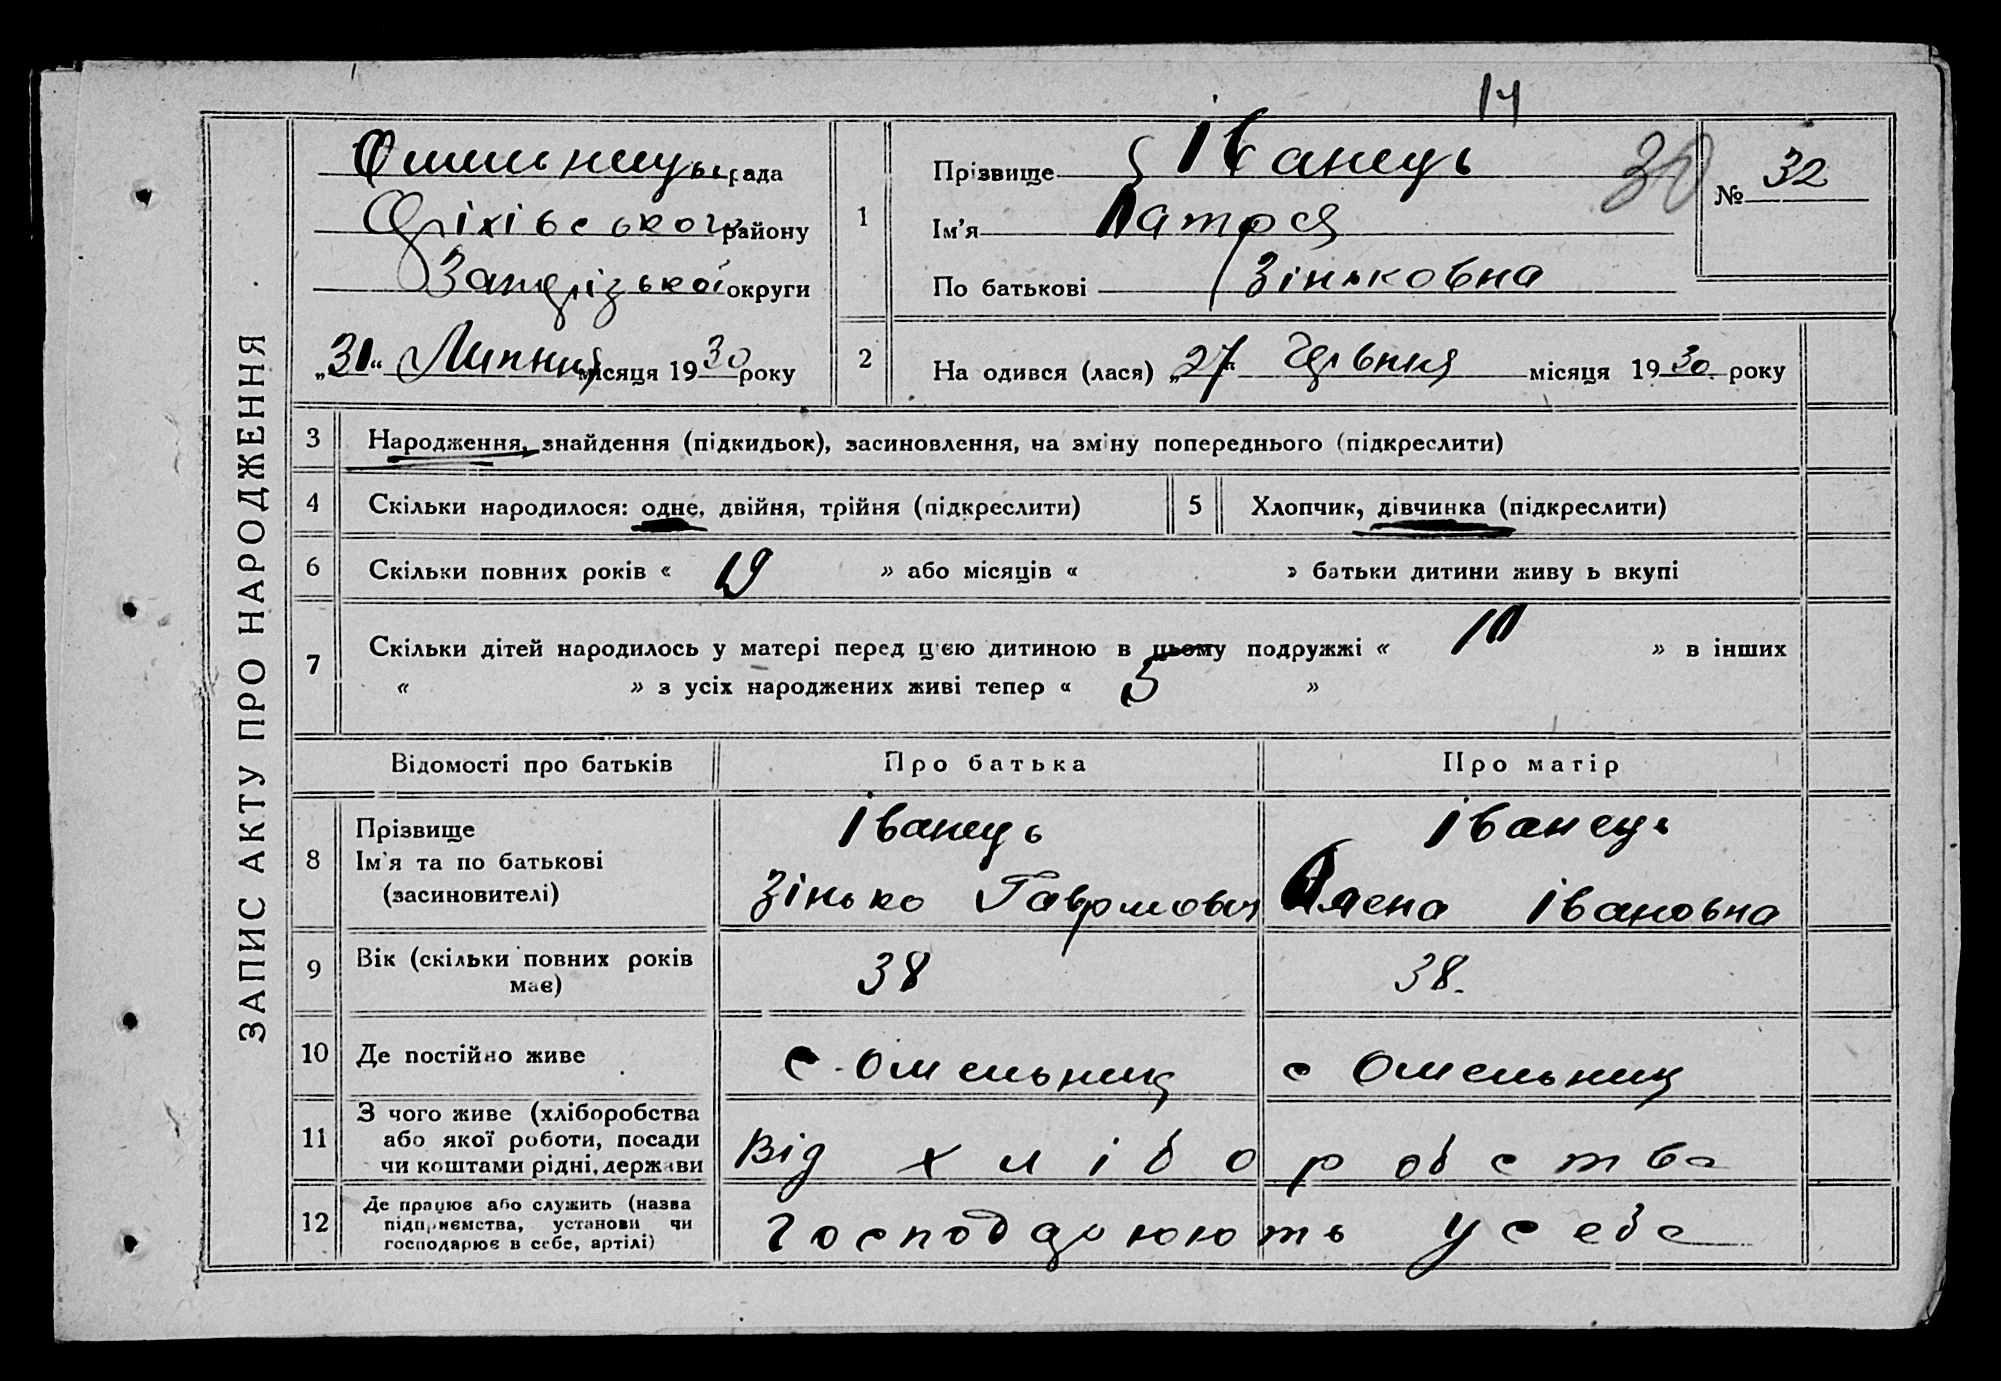 14
ЗАПИС АКТУ ПРО НАРОДЖЕННЯ
Омельницьк рада
Оріхівського району
Запорізької округи
„31“ Липня місяця 1930 року
1
Прізвище Іванець
Ім'я Патрся
По батькові Зіньковна
30
№ 32
2
На одився (лася) „27“ Червня місяця 1930 року
3 Народження, знайдення (підкидьок), засиновлення, на зміну попереднього (підкреслити)
4 Скільки народилося: одне, двійня, трійня (підкреслити)
5 Хлопчик, дівчинка (підкреслити)
6 Скільки повних років « 19 » або місяців « » батьки дитини живу ь вкупі
7 Скільки дітей народилось у матері перед цією дитиною в цьому подружжі « 10 » в інших
« » з усіх народжених живі тепер « 5 »
Відомості про батьків Про батька Про матір
8 Прізвище
Ім'я та по батькові
(засиновителі)
Іванець
Зінько Гаврилович
Іванець
Олена Івановна
9 Вік (скільки повних років
має)
38 38.
10 Де постійно живе с. Омельник с Омельник
11 З чого живе (хліборобства
або якої роботи, посади
чи коштами рідні, держави
Від хліборобства
12 Де працює або служить (назва
підприємства, установи чи
господарює в себе, артілі)
Господарюють у себе